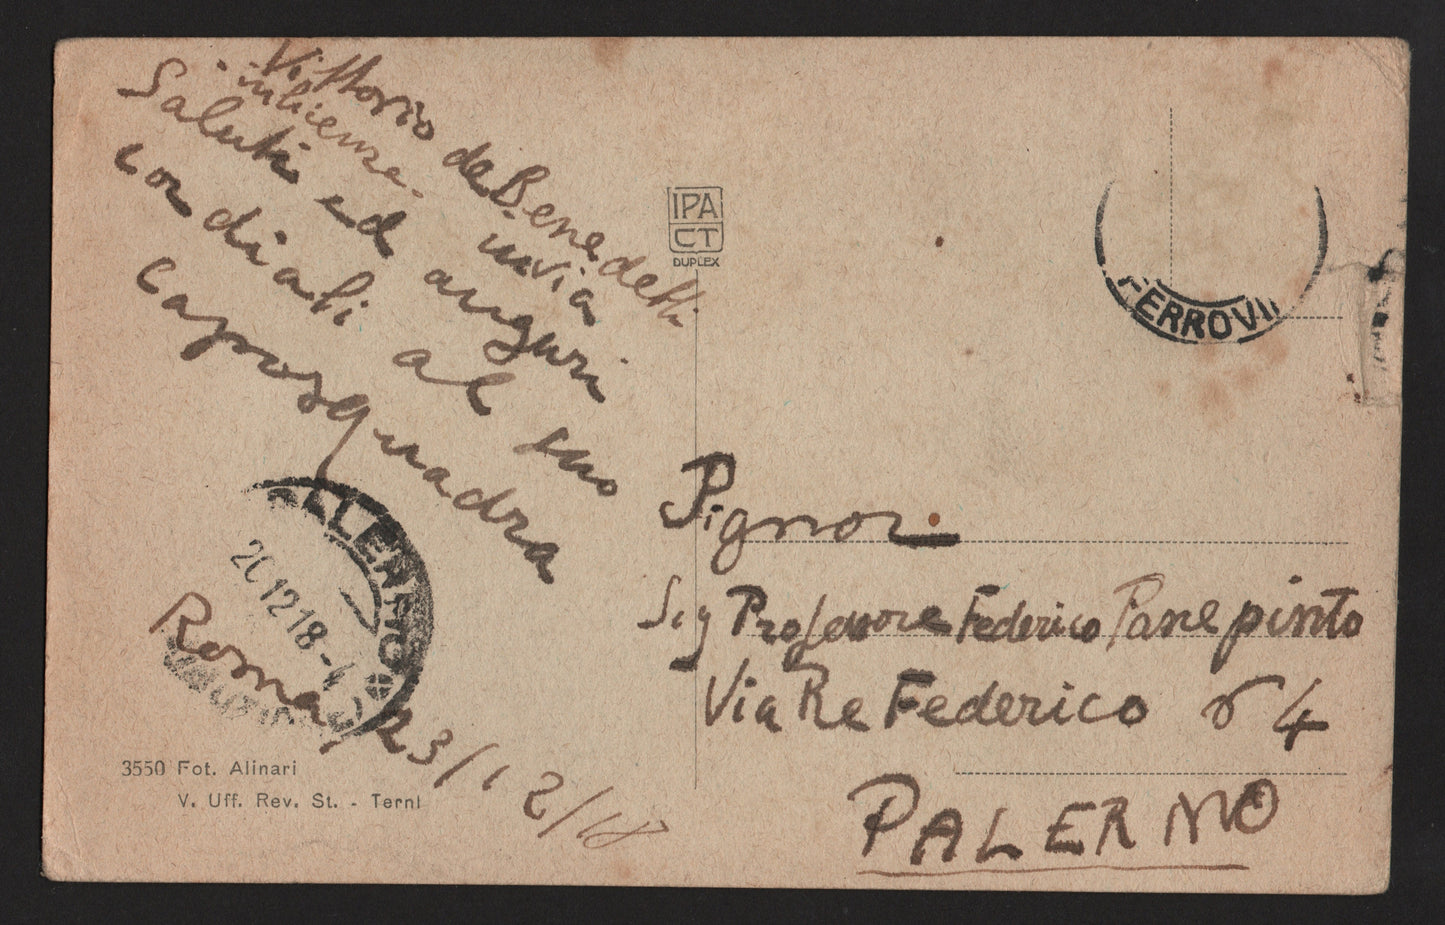 Vittorio de Benedetti
invia
Saluti ed auguri
cordiali al suo
caposquadra
Roma, 23/12/18
PALERMO
20 12 18 - 4
3550 Fot. Alinari
V. Uff. Rev. St. - Terni
IPA
CT
DUPLEX
FERROVI
Signor
Sig Professore Federico Panepinto
Via Re Federico 4
PALERMO